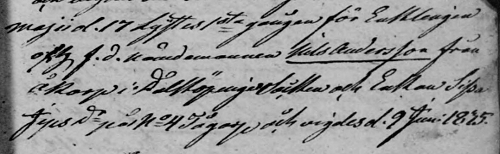 maji d. 17 lystes 1sta gången för Enklingen
och f. d. nämndemannen Nils Andersson från
Åkarp i Dalköpinge och Enkan Sissa
Jeps Dr på No 4 Tågarp och vigdes d. 9 Juni 1835.